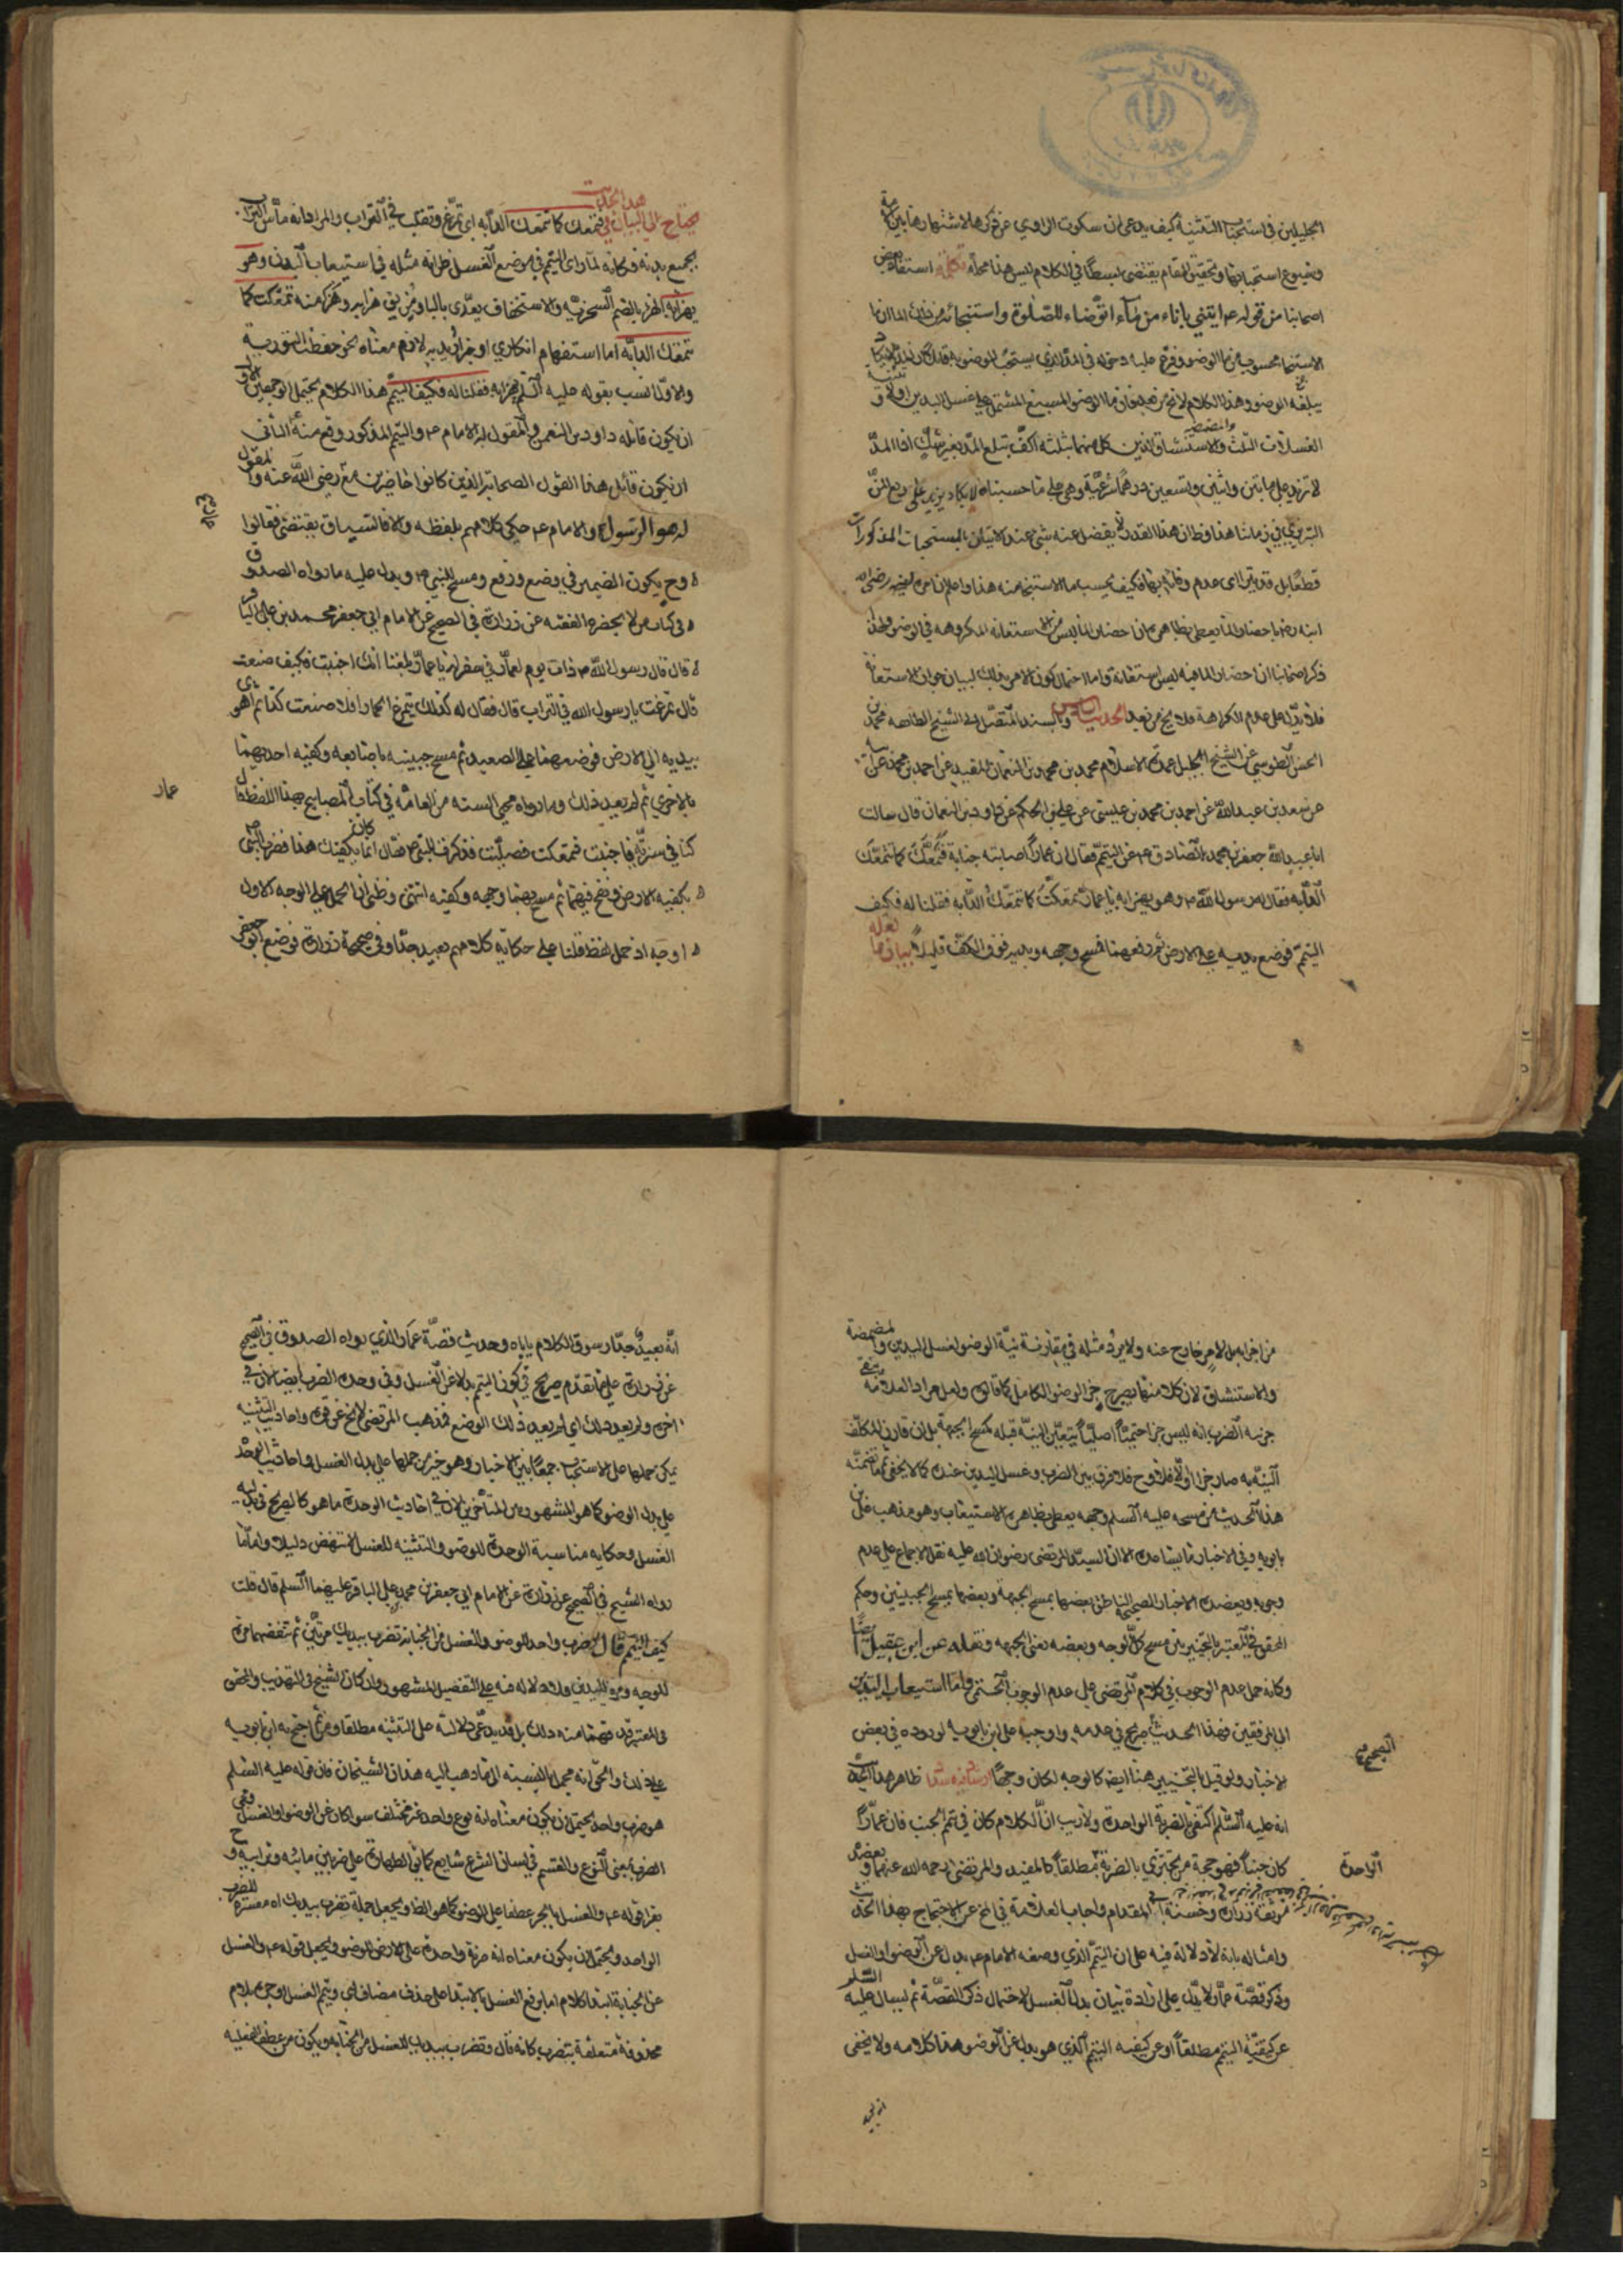 الجليلين في استحباب التثنية كيف يدعى ان سكوت الراوي عن ذكرها لاشتهارها بين
وشيوع استحبابها وتحقيق المقام يقتضي بسطا في الكلام ليس هذا محله تكملة استفاد بعض
اصحابنا من قوله ع ايتني باناء من ماء اتوضاء للصلوة واستنجائه من ذلك الماء ان ماء
الاستنجا محسوب من ماء الوضو وفرع عليه دخوله في المد الذي يستحب الوضو به
يبلغه الوضو وهذا الكلام لا يخ من بعد فان ماء الوضو المسبغ المشتمل على غسل اليدين
الغسلات الثلث والمضمضة والاستنشاق اللذين كل منهما بثلث اكف تبلغ المد بغير شك اذ المد
لا تزيد على مايتين واثنين وتسعين درهما شرعية وهي على ما حسبناه لا يكاد يزيد على ربع المن
التبريزي في زماننا هذا وظ ان هذا القدر لا يفضل عنه شئ عند الاتيان بالمستحبات المذكورات
قطعا بل قد يترااى عدم وفائه بها فكيف يحسب ماء الاستنجا منه هذا واعلم ان امره ابنه رضي الله
ابنه رضه باحضار الماء يعطي بظاهره ان احضار الماء ليس من الاستعانة المكروهة في الوضو ولهذا
ذكر اصحابنا ان احضار الماء فيه ليس استعانة واما احتمال كون الامر بذلك لبيان جواز الاستعانة
فلا يدل على عدم الكراهة فلا يخ من بعد الحديث السادس وبالسند المتصل الى الشيخ الطائفه محمد بن
الحسن الطوسي عن الشيخ الجليل عمدة الاسلام محمد بن محمد بن النعمان المفيد عن احمد بن محمد عن ابيه
عن سعد بن عبد الله عن احمد بن محمد بن عيسى عن علي بن الحكم عن داود بن النعمان قال سالت
ابا عبد الله جعفر بن محمد الصادق ع عن التيمم فقال ان عمارا اصابته جنابة فتمعك كما تتمعك
الدابه فقال له رسول الله ص وهو يهزا به يا عمار تمعكت كما تتمعك الدابه فقلنا له فكيف
التيمم فوضع يديه على الارض ثم رفعهما فمسح وجهه ويديه فوق الكف قليلا بيان ما لعله
يحتاج الى البيان في هذا الحديث فتمعك كما تتمعك الدابه اي تمرغ وتقلب في التراب والمراد انه ماس التراب
بجميع بدنه فكانه لما راى التيمم في موضع الغسل ظن انه مثله في استيعاب البدن وهو
يهزا به الهزء بالضم السخرية والاستخفاف يعدى بالبا ومن يق هزابه وهزا منه تمعكت كما
تتمعك الدابه اما استفهام انكاري او خبر اريد به لازم معناه نحو حفظت التورية
والاول انسب بقوله عليه السلم يهزا به فقلنا له فكيف التيمم هذا الكلام يحتمل الوجهين الاول
ان يكون قائله داود بن النعمن والمقول له الامام ع والتيمم المذكور وقع منه الثاني
ان يكون قائل هذا القول الصحابة الذين كانوا حاضرين مع رضي الله عنه والمقول
له هو الرسول والامام ع حكى كلامهم بلفظه والا فالسياق يقتضي فقالوا
وح يكون الضمير في وضع ورفع ومسح للنبي ص ويدل عليه ما رواه الصدوق
في كتاب من لا يحضره الفقيه عن زرارة في الصحيح عن الامام ابي جعفر محمد بن علي الباقر
قال قال رسول الله ص ذات يوم لعمار في سفر له يا عمار بلغنا انك اجنبت فكيف صنعت
قال تمرغت يا رسول الله في التراب قال فقال له كذلك يتمرغ الحمار افلا صنعت كذا ثم اهوى
بيديه الى الارض فوضعهما على الصعيد ثم مسح جبينه باصابعه وكفيه احديهما
بالاخرى ثم لم يعد ذلك وما رواه محيي السنه من العامه في كتاب المصابيح بهذا اللفظ قال
كنا في سرية فاجنبت فتمعكت فصليت فذكرت للنبي ص فقال انما كان يكفيك هذا فضرب النبي
بكفيه الارض ونفخ فيهما ثم مسح بهما وجهه وكفيه انتهى وظني ان الحمل على الوجه الاول
اوجه اذ حمل لفظ قلنا على حكاية كلامهم بعيد جدا وفي صحيحة زرارة فوضع ابو جعفر
عمار
من اجزائه بل لامر خارج عنه ولا يرد مثله في مقارنة نية الوضو لغسل اليدين والمضمضة
والاستنشاق لان كلا منهما يصير جزء الوضو الكامل كما قالوه ولعل مراد العلامة
جزئية الضرب انه ليس جزا حتميا اصليا يتعين النية قبله كمسح الجبهة بل ان قارن المكلف
النية به صار جزا والا فلا وح فلا فرق بين الضرب وغسل اليدين عنده كما لا يخفى ثم ما تضمنه
هذا الحديث من مسحه عليه السلم وجهه يعطي بظاهره الاستيعاب وهو مذهب علي بن
بابويه وفي الاخبار ما يساعده الا ان السيد المرتضى رضوان الله عليه نقل الاجماع على عدم
وجوبه ويعضده الاخبار الصحيحه الناطق بعضها بمسح الجبهة وبعضها بمسح الجبينين وحكم
المحقق في المعتبر بالتخيير بين مسح كل الوجه وبعضه يعني الجبهه ونقله عن ابن عقيل ايضا
وكانه حمل عدم الوجوب في كلام المرتضى على عدم الوجوب الحتمي واما استيعاب اليدين
الى المرفقين فهذا الحديث صريح في عدمه واوجبه علي بن بابويه لوروده في بعض
الاخبار ولو قيل بالتخيير هنا ايضا كالوجه لكان وجها ظاهر هذا الحديث
انه عليه السلم اكتفى بالضربة الواحدة ولا ريب ان الكلام كان في تيمم الجنب فان عمارا
كان جنبا فهو حجة من يجتزي بالضربة مطلقا كالمفيد والمرتضى رحمه الله عنهما ويعضده
الصحيح
الواحدة
موثقة زرارة وحسنة المقدام واجاب العلامة في لخ عن الاحتجاج بهذا الحديث
وامثاله بانه لا دلالة فيه على ان التيمم الذي وصفه الامام ع بدل عن الوضو او الغسل
وذكر قصة عمار لا يدل على ارادة بيان بدل الغسل لاحتمال ذكر القصة ثم ليسال عليه السلم
عن كيفية التيمم مطلقا او عن كيفيه التيمم الذي هو بدل عن الوضو هذا كلامه ولا يخفى
انه بعيد جدا وسوق الكلام ياباه وحديث قصة عمار الذي رواه الصدوق في الصحيح
عن زرارة على ما تقدم صريح في كون التيمم بدلا عن الغسل وفي وحدة الضرب ايضا لان في
اخره ولم يعد ذلك اي لم يعد ذلك الوضع فمذهب المرتضى لا يخ عن قوة واحاديث التثنيه
يمكن حملها على الاستحباب جمعا بين الاخبار وهو خير من حملها على بدل الغسل واحاديث الوحدة
على بدل الوضو كما هو المشهور بين المتاخرين لان في احاديث الوحدة ما هو كالصريح في بدلية
الغسل وحكايه مناسبة الوحدة للوضو والتثنيه للغسل لا تنهض دليلا واما ما
رواه الشيخ في الصحيح عن زرارة عن الامام ابي جعفر محمد بن علي الباقر عليهما السلم قال قلت
كيف التيمم قال هو ضرب واحد للوضو والغسل من الجنابة تضرب بيديك مرتين ثم تنفضهما مرة
للوجه ومرة لليدين فلا دلاله فيه على التفصيل المشهور وان كان الشيخ في التهذيب والمحقق
في المعتبر قد فهما منه ذلك بل قد يدعى دلالته على التثنيه مطلقا ومن ثم احتج به ابن بابويه
على ذلك والحق انه مجمل بالنسبة الى ما ذهب اليه هذان الشيخان فان قوله عليه السلم
هو ضرب واحد يحتمل ان يكون معناه انه نوع واحد غير مختلف سواء كان عن الوضو او الغسل
الضرب بمعنى النوع والقسم في لسان الشرع شايع كما في الطهارة على ضربين مائيه وترابيه وح
يقرا قوله ع والغسل بالجر عطفا على الوضو كما هو الظ ويجعل جملة تضرب بيديك اه مفسرة للضرب
الواحد ويحتمل ان يكون معناه انه ضربة واحدة على الارض للوضو ويجعل قوله ع والغسل
عن الجنابة ابتدا كلام اما برفع الغسل بالابتدا على حذف مضاف اي وتيمم الغسل او جره بلام
محذوفة متعلقة بتضرب كانه قال وتضرب بيديك للغسل من الجنابه ويكون من عطف الفعليه